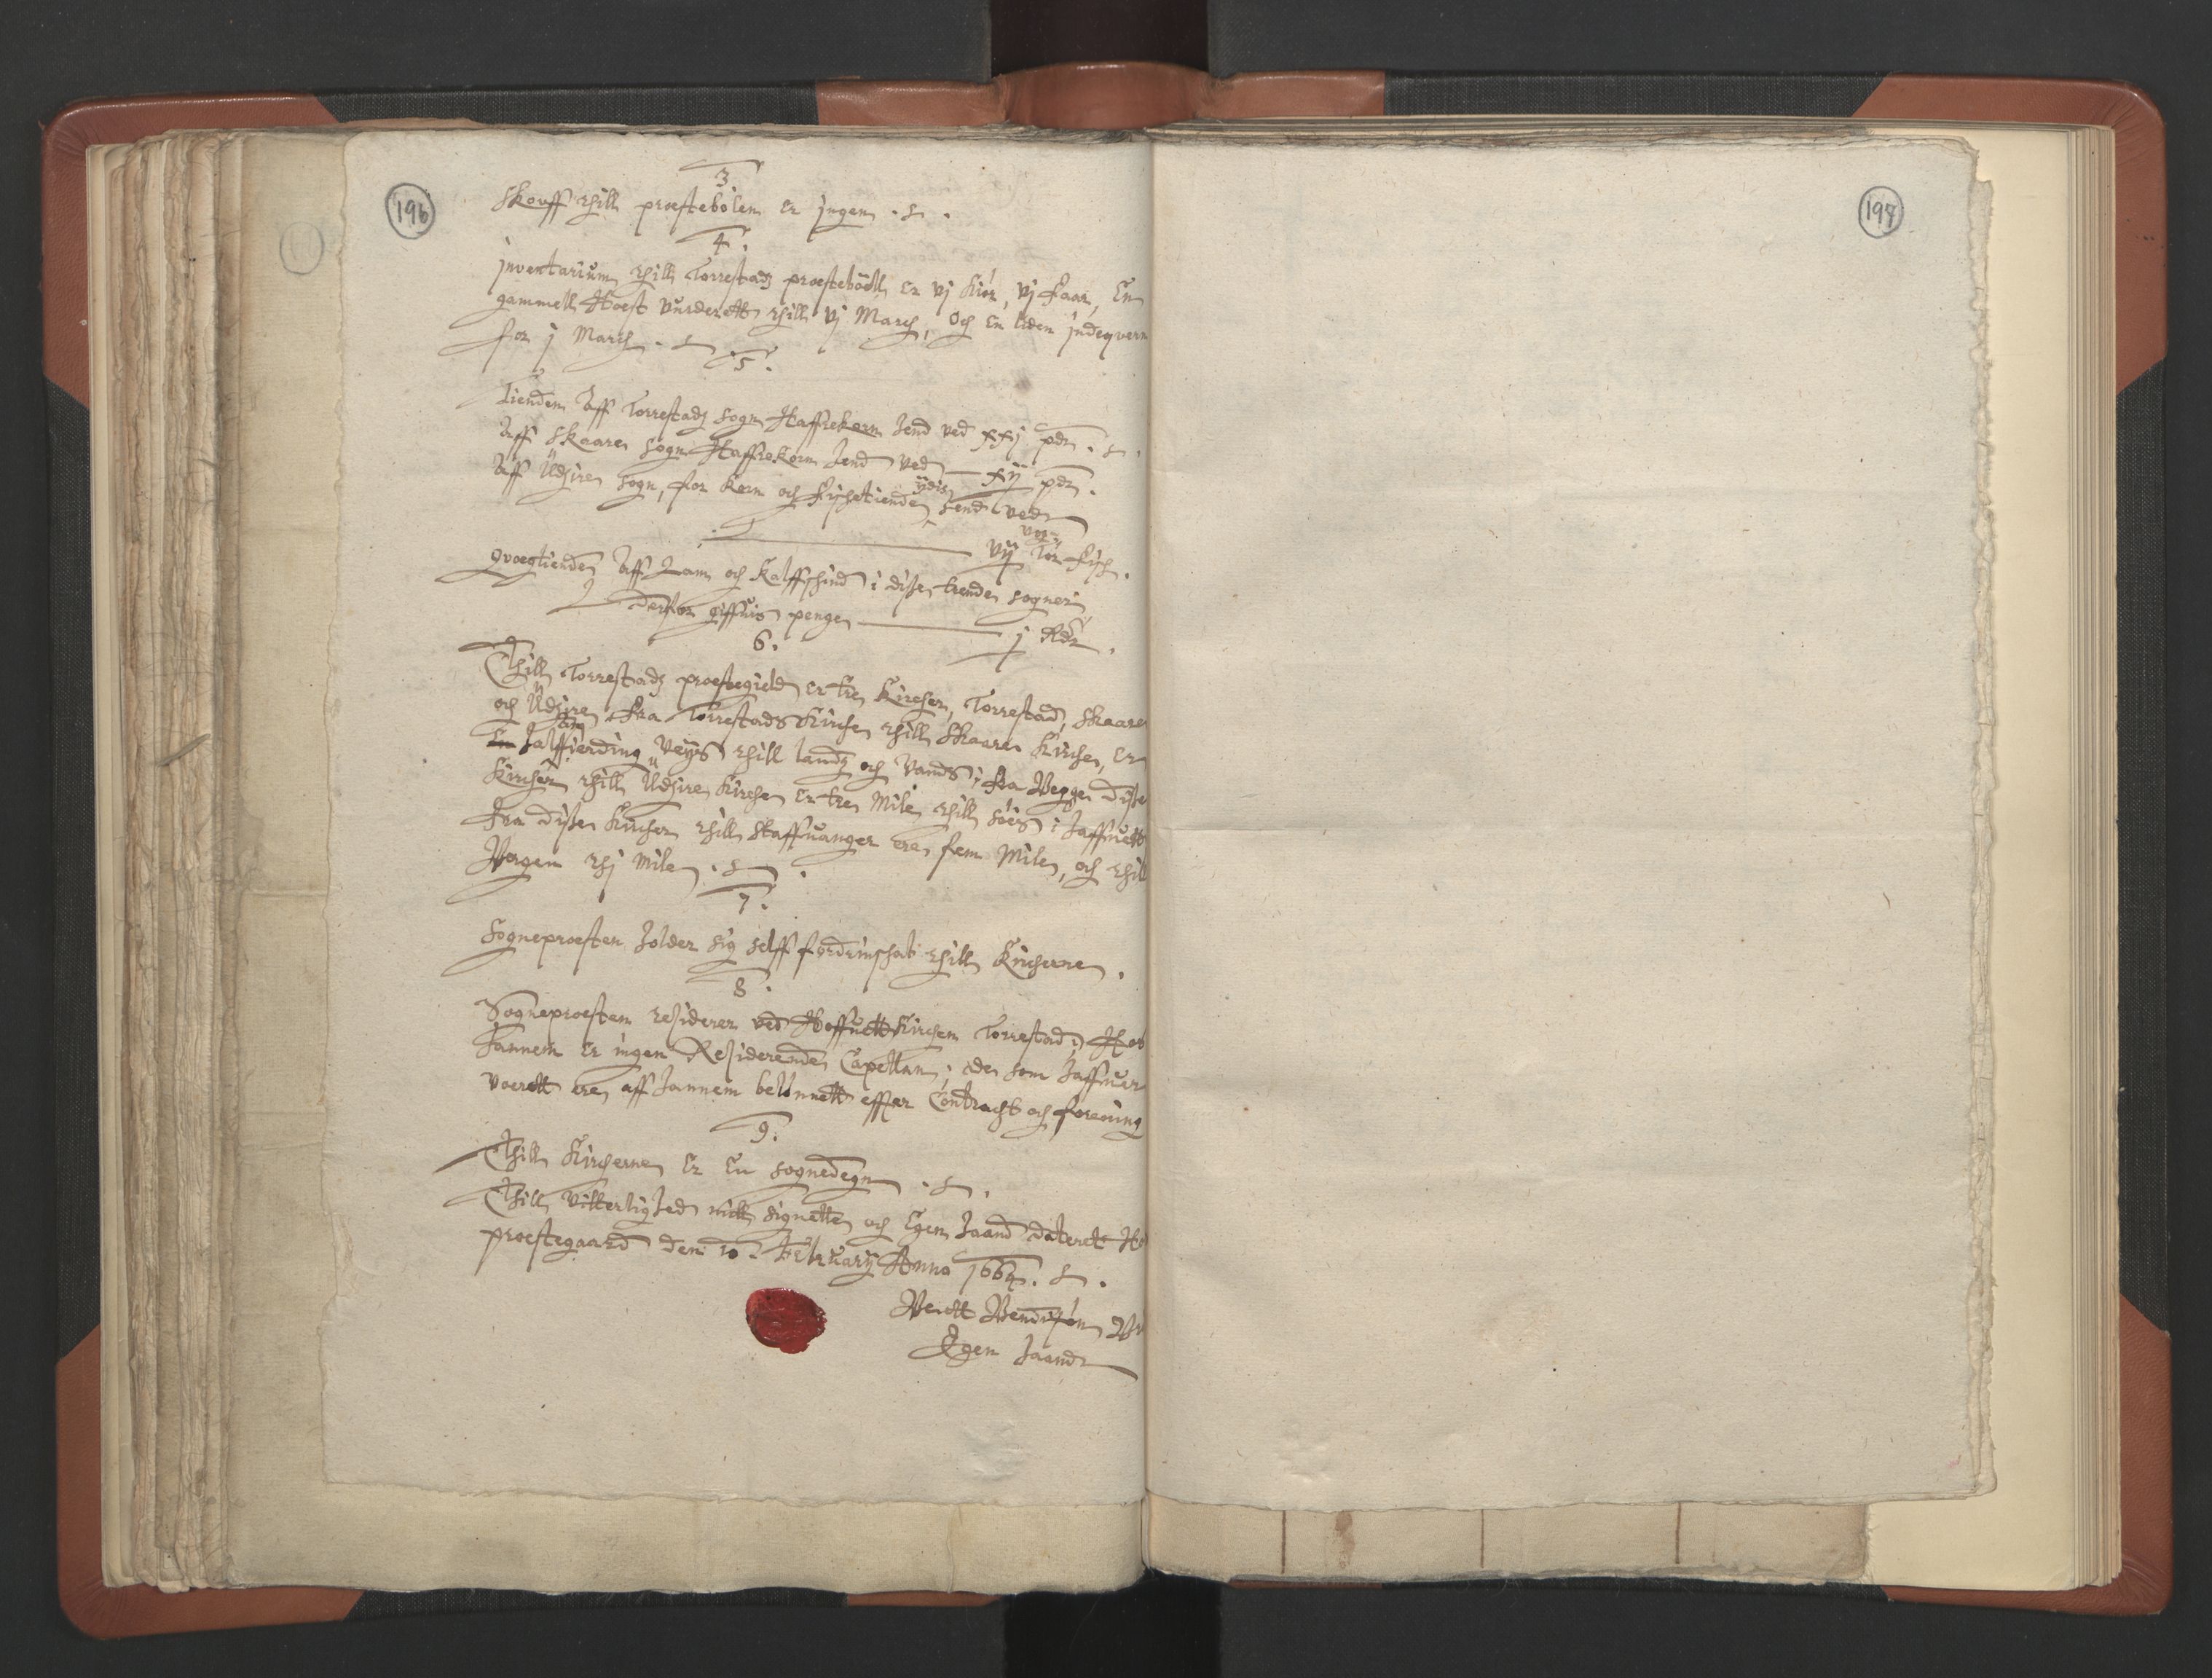 196
3
Skouff thill præstebolen er jngen . s .
4.
jnventarium thill Torrestadz præsteböell er vj kiör, vj faar, En
gammell Hæst vurderett thill vj March, Och en liden jndeqvern
for j March . s .
5.
Tienden Aff Torrestadz sogn Haffrekorn hend ved xxj pdr . s .
Aff Skaare sogn Haffrekorn hend ved — xij pdr .
Aff Udzire sogn, for korn och fischetiende ydis hend ved
vog:
vij Tör fisch .
qvægtienden Aff Lam och kalffschind i disse trende sogner
derfor giffuis penge — j Rdr .
6.
Thill Torrestadz præstegield er tre Kircher, Torrestad, Skaare
och Udzire, fra Torrestads Kirche thill Skaare Kirche, er
halffierding veys thill landz och vands; fra Begge disse
Kircher thill Udzire Kirche er tre Mile thill söes i haffuett
fra disse Kircher thill Staffuanger ere fem Mile, och thill
Bergen xvj Mile . s .
7.
Sognepræsten holder sig selff fordrinschab thill Kircherne .
8.
Sognepræsten residerer ved Hoffuett Kirchen Torrestad, Hos
hannem er ingen Residerende Capellan; de som haffuer
værett ere aff hannem belönnett effter Contracht och forening
9.
Thill Kircherne Er En sognedegn . s .
Thill vitterlighed mitt signette och Egen haand dateret
præstegaard den 10. February Anno 1664. s .
Bendt Bendtsön
Egen haand
197